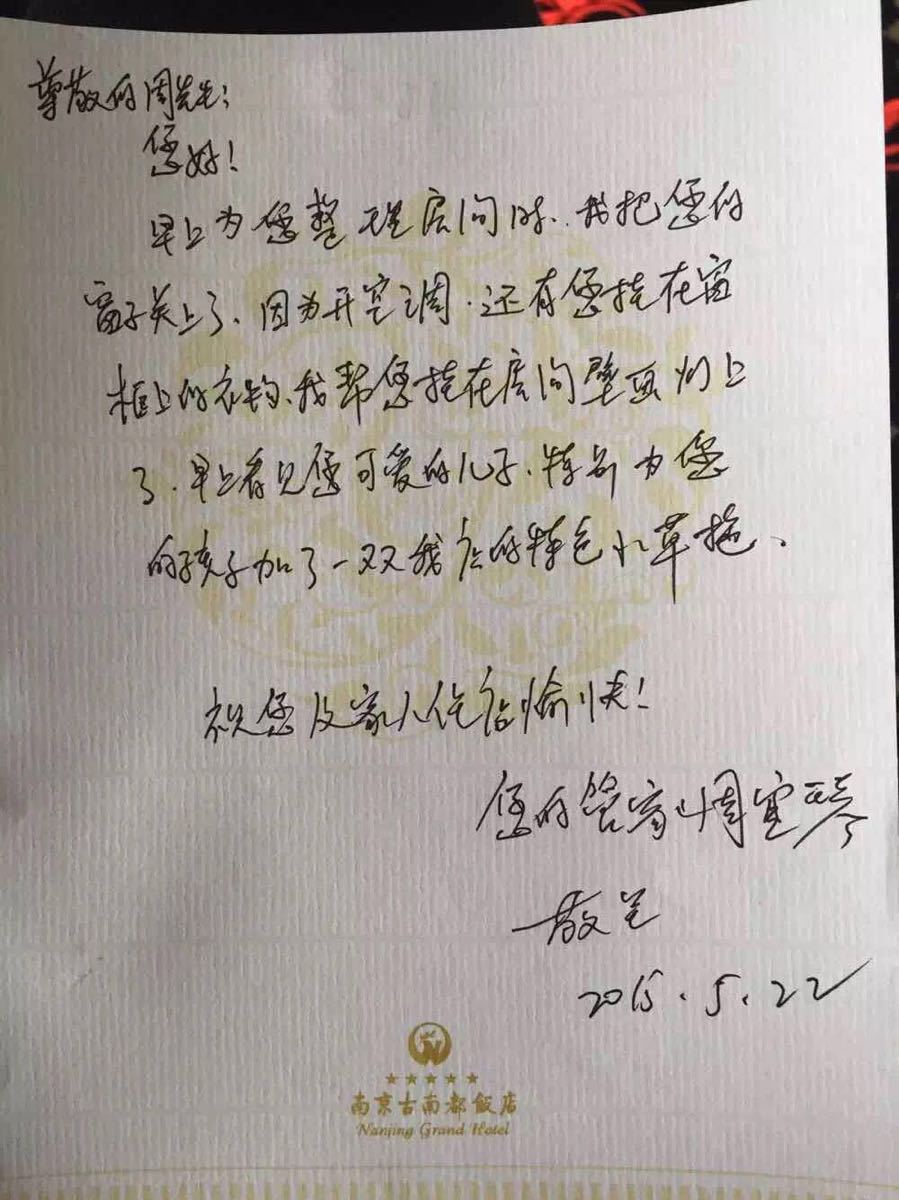 尊敬的周先生：
您好！
早上为您整理房间时、我把您的
窗子关上了、因为开空调．还有您挂在窗
框上的衣物、我帮您挂在房间壁画灯上
了．早上看见您可爱的儿子、特别为您
的孩子加了一双我店的特色小草拖、
祝您及家人住店愉快！
您的管家：周宜琴
敬呈
2015.5.22
南京古南都飯店
Nanjing Grand Hotel